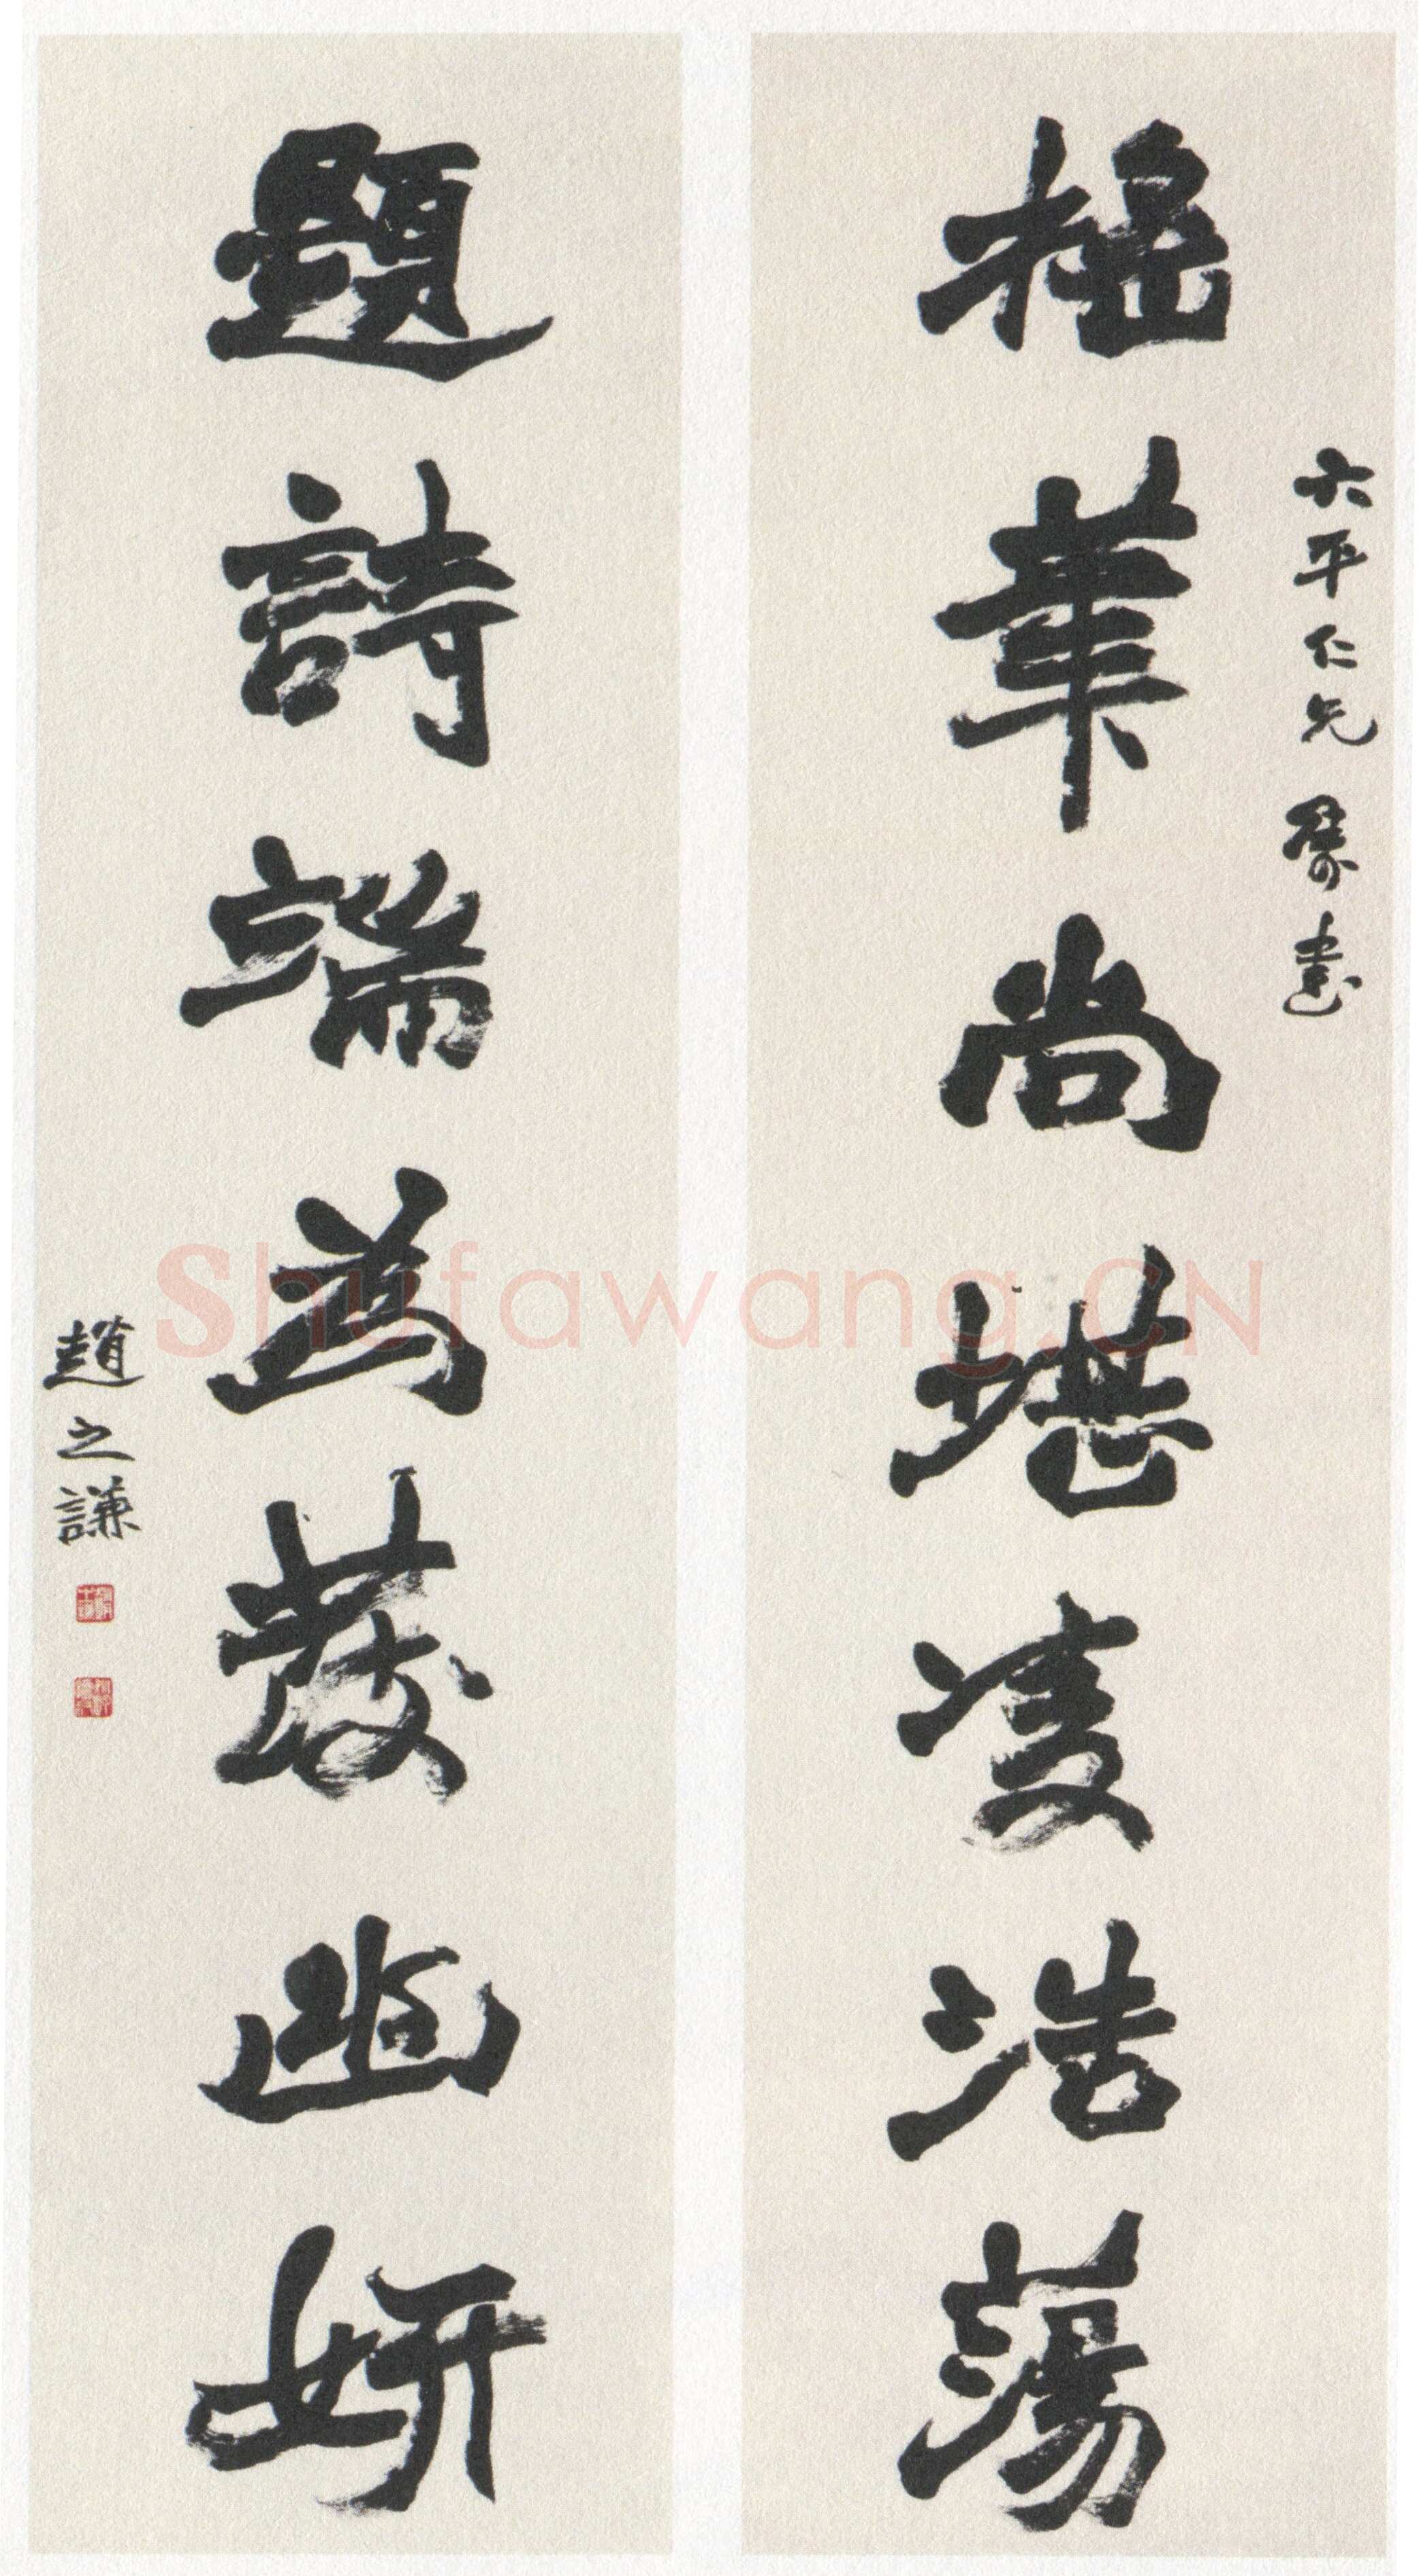 六平仁兄屬書
搖筆尚堪凌浩蕩
題詩端為發幽妍
趙之謙
Shufawang.CN